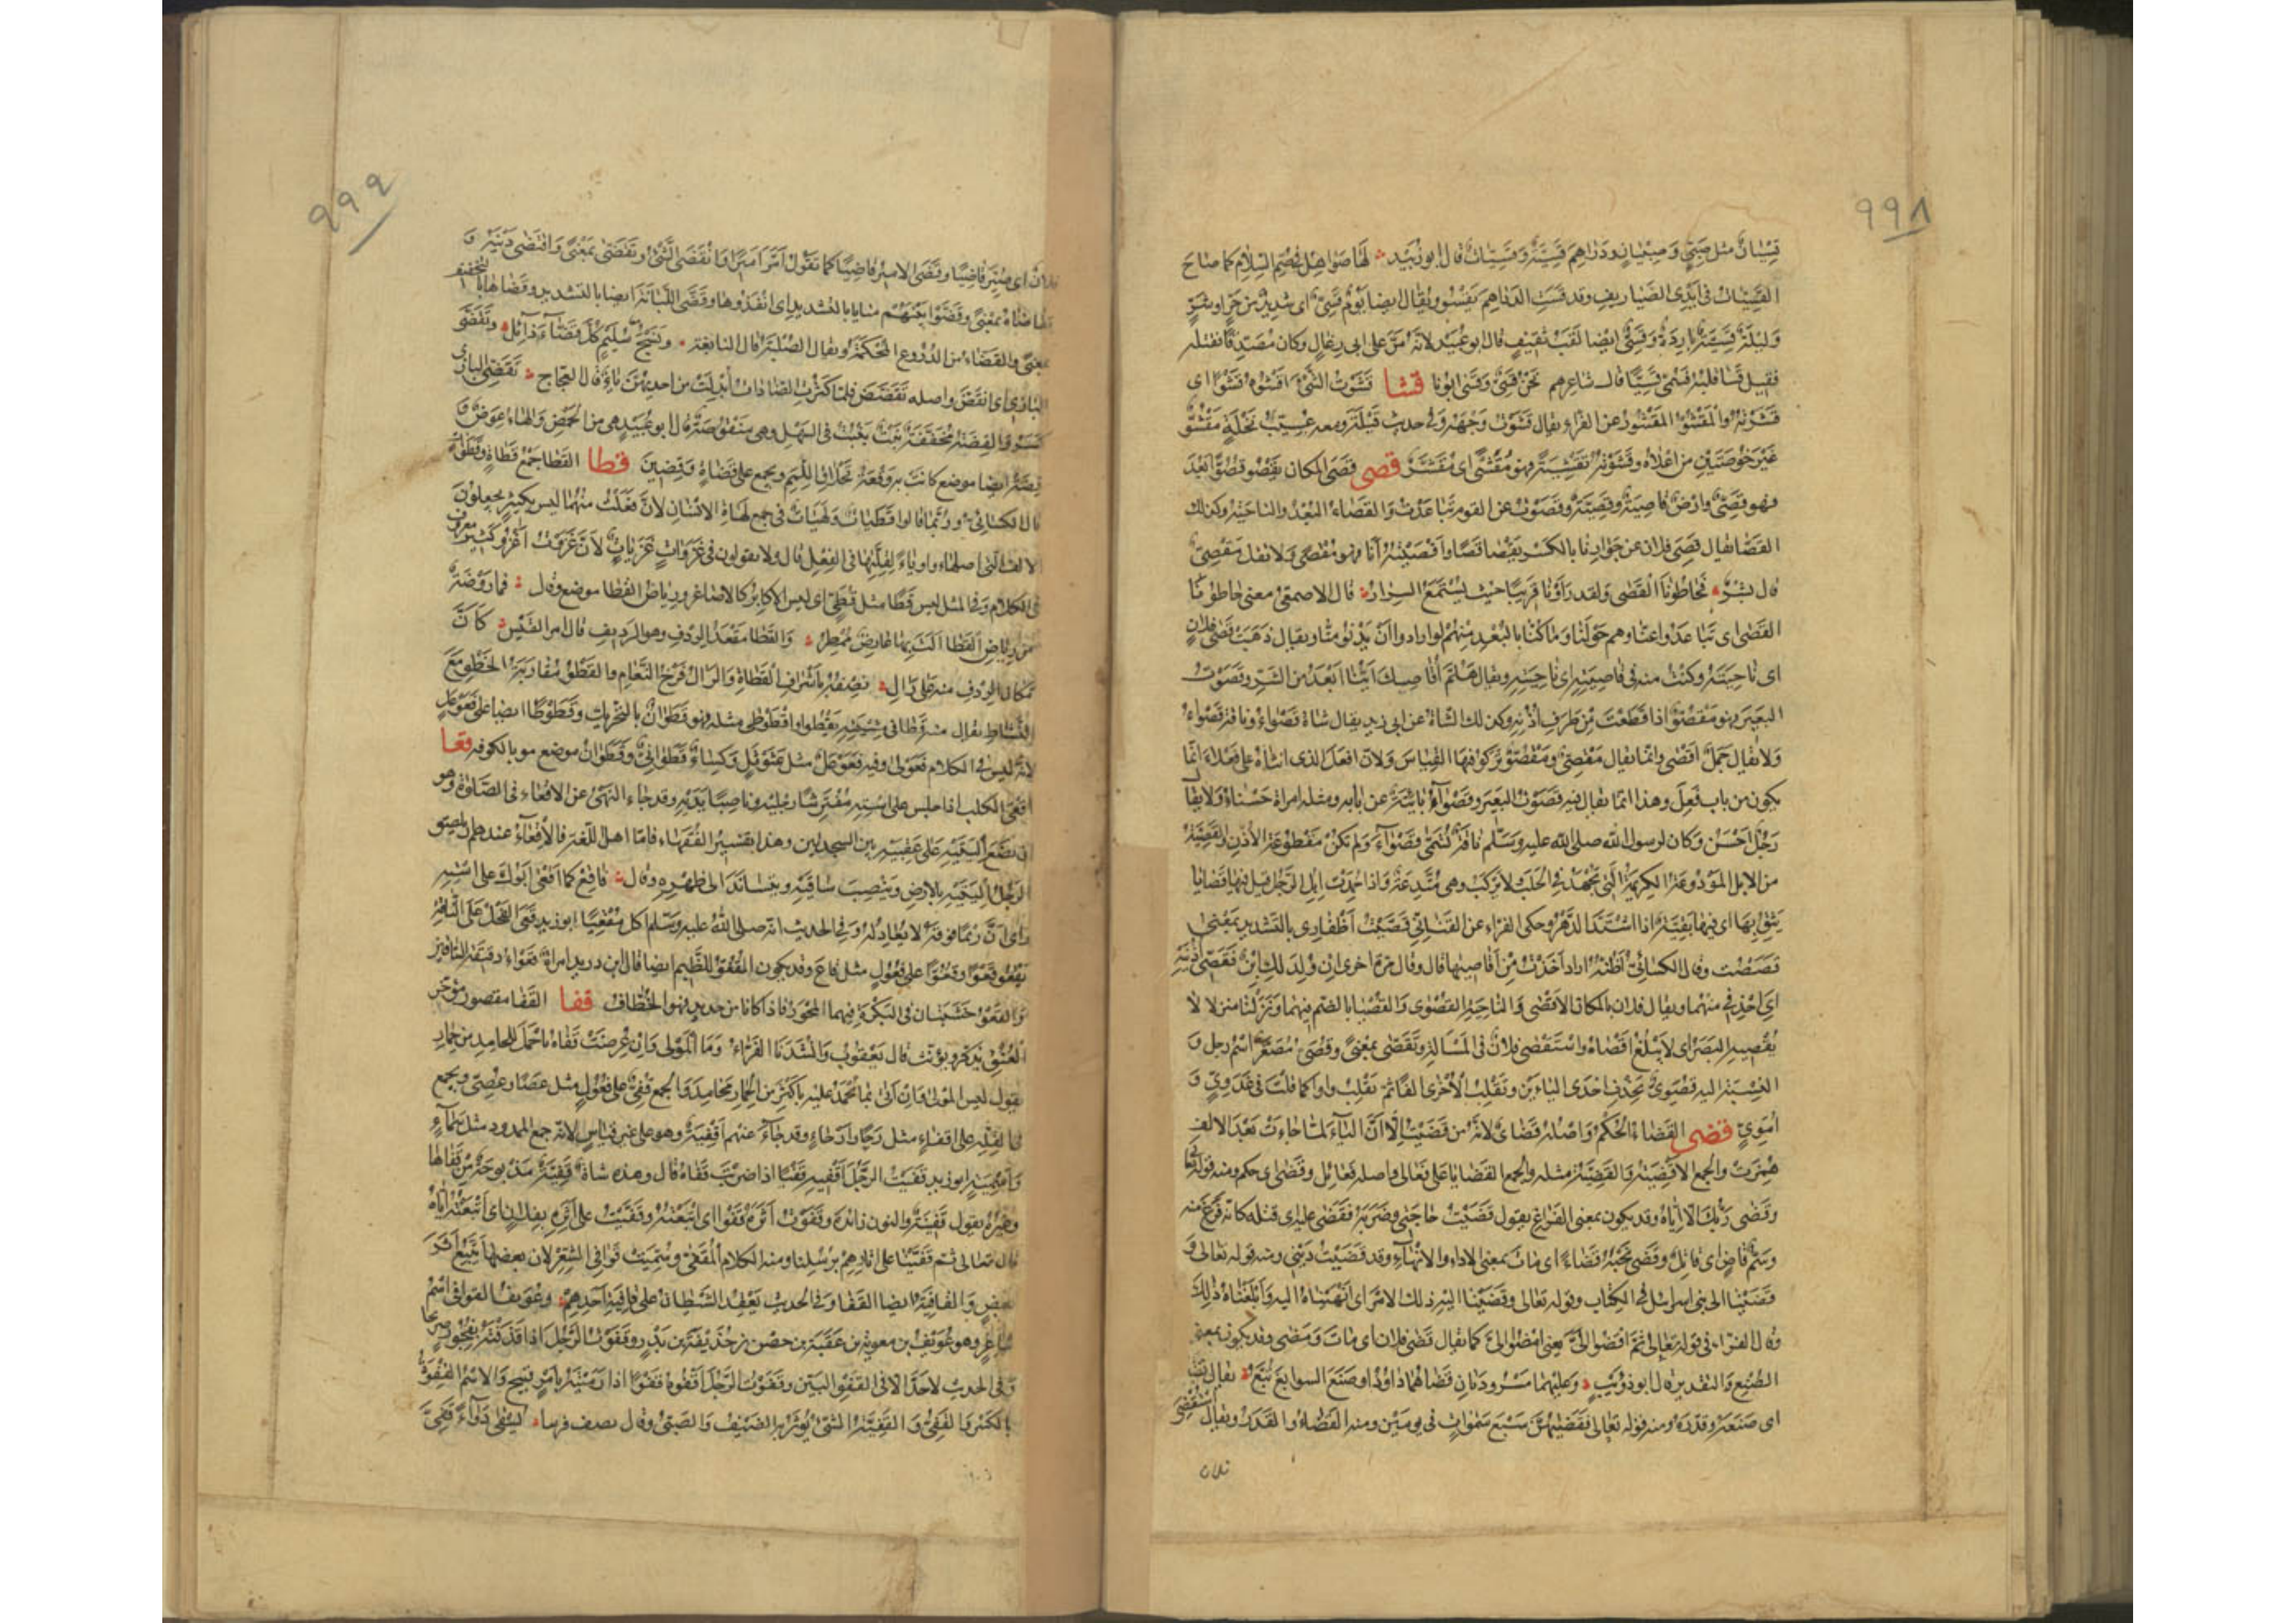 ٩٩٨
قِسْيَانٌ مثل صَبِيٍّ وَصِبْيَانٍ ودَرَاهِمُ قَسِيَّةٌ وَقَسِيَّاتٌ قال ابو زُبَيْدٍ لَهَا صَوَاهِلُ فى صُمِّ السِّلَامِ كما صَاحَ
القَسِيَّاتُ فى أَيْدِى الصَّيَارِيفِ وقد قَسَتِ الدراهم تَقْسُو ويُقَالُ ايضا يَوْمٌ قَسِىٌّ اى شديدٌ من حَرٍّ او شَرٍّ
وَلَيْلَةٌ قَسِيَّةٌ بَارِدَةٌ وَقَسِىٌّ ايضا لَقَبُ ثَقِيفٍ قال ابو عُبَيْد لانّه مَرَّ على ابى رِغَالٍ وكان مُصَدِّقًا فقتله
فقيل قَسَا قلبُه فَسُمِّىَ قَسِيًّا قال شاعرهم نَحْنُ قَسِىٌّ وَقَسَى ابُونا قشا قَشَوْتُ الشَّىْءَ اقْشُوهُ قَشْوًا اى
قَشَرْتُهُ والمَقْشُوُّ المَقْشُورُ عن الفرّاء يقال قَشَوْتُ وَجْهَهُ وَفى حديث قَيْلَةَ ومعه عُسَيِّبُ نَخْلَةٍ مَقْشُوٌّ
غَيْرَ خُوصَتَيْنِ من اعْلَاه وقَشَّيْتُهُ تَقْشِيَةً فهو مُقَشًّى اى مُقَشَّرٌ قصى قَصَى المكان يَقْصُو قُصُوًّا بَعُدَ
فهو قَصِىٌّ وارضٌ قَاصِيَةٌ وقَصِيَّةٌ وقَصَوْتُ عن القوم تَبَاعَدْتُ وَالقَصَاءُ البُعْدُ والناحيةُ وكذلك
القَصَا يقال قَصِىَ فلان عن جِوَارِنَا بالكسر يَقْصَا قَصًا واَقْصَيْتُهُ أَنَا فهو مُقْصًى وَلا تقل مَقْصِىٌّ
قال بِشْرٌ فَحَاطُونَا القَصَى وَلقد رَأَوْنَا قَرِيبًا حيث يُسْتَمَعُ السِّرَارُ قال الاصمعىّ معنى حاطونا
القَصَى اى تَبَاعَدُوا عنّا وهم حَوْلَنا وَمَا كُنَّا بالبُعْدِ منهم لو ارادوا اَنْ يَدْنُوا منّا ويقال ذَهَبْتُ قَصَى فلانٍ
اى نَاحِيَتَهُ وكنتُ منه فى قَاصِيَتِهِ اى نَاحِيَتِهِ ويقال هَلُمَّ أُقَاصِيكَ ايُّنَا ابْعَدُ من الشَرِّ وقَصَوْتُ
البعيرَ فهو مَقْصُوٌّ اذا قَطَعْتَ مِنْ طَرَفِ اُذُنِهِ وكذلك الشاةُ عن ابى زيد يقال شاةٌ قَصْوَاءُ وناقة قَصْوَاءُ
وَلا يقال جَمَلٌ اقْصَى وانّما يقال مَقْصِىٌّ ومَقْصُوٌّ تركوا فيها القِيَاسَ وَلانّ افعَلَ الذى انثاهُ على فَعْلَاءَ انّما
يكون من باب فَعِلَ وهذا انّما يقال فيه قَصَوْتُ البَعِيرَ وقَصْوَاءُ بَائِنَةٌ عن بابه ومثله امراةٌ حَسْنَاءُ وَلا يقال
رَجُلٌ اَحْسَنُ وَكان لرسول الله صلى الله عليه وَسَلّم نَاقَةٌ تُسَمَّى قَصْوَاءَ وَلم تكن مقطوعةَ الأُذُنِ والقَصِيَّةُ
من الابل المَوْدُوعَةُ الكريمةُ الّتى لا تُجْهَدُ فى الحَلَبِ ولا تُرْكَبُ وهى مُتَّدِعَةٌ وَاذا حُمِدَتْ اِبِلُ الرَّجُلِ قيل فيها قَصَايَا
يَثِقُ بِهَا اى فيها بَقِيَّةٌ اذا اشْتَدَّ الدَّهْرُ وحكى الفرّاء عن القَنَانِىِّ قَصَّيْتُ أَظْفَارِى بالتَّشديد بمعنى
قَصَصْتُ وقال الكسائىُّ اَظُنُّهُ اراد اَخَذْتُ مِنْ اَقَاصِيهَا قال وقال مرّةً اخرى اِنْ وُلِدَ لَكِ اِبْنٌ فَقَصِّى أُذُنَيْهِ
اى احْذِفِى منهما ويقال فلان بالمكان الاَقْصَى وَالناحيةِ القُصْوَى وَالقُصْيَا بالضّم فيهما وَنَزَلْنَا منزلا لا
يُقْصِيهِ البَصَرُ اى لا يَبْلُغُ اَقْصَاهُ وَاسْتَقْصَى فلانٌ فى المَسْأَلَةِ وتَقَصَّى بمعنًى وقُصَىٌّ مُصَغَّرٌ اسْمُ رجل وَ
النِّسْبَةُ اليه قُصَوِىٌّ تحذف اِحْدَى اليَاءَيْنِ وتُقْلَبُ الاُخْرَى الفًا ثمّ تقلب واوا كما قلبت فى عَدَوِىٍّ وَ
اُمَوِىٍّ قضى القَضَاءُ الحُكْمُ وَاصْلُه قَضَاىٌ لانّه من قَضَيْتُ اِلّا اَنَّ اليَاءَ لمّا جاءت بَعْدَ الالف
هُمِزَتْ والجمع الاَقْضِيَةُ وَالقَضِيَّةُ مثله والجمع القَضَايَا على فَعَالَى واصله فَعَائِلُ وقَضَى اى حكم ومنه قوله تعالى
وقَضَى رَبُّكَ اَلَّا تعبدوا اِلَّا اِيَّاهُ وقد يكون بمعنى الفَرَاغِ تقول قَضَيْتُ حاجتى وضَرَبَهُ فَقَضَى عليه اى قتله كانّه فَرَغَ منه
وسَمٌّ قَاضٍ اى قَاتِلٌ وقَضَى نَحْبَهُ قَضَاءً اى مَاتَ بمعنى الاداءِ والاِنْهَاءِ وقد قَضَيْتُ دَيْنِى ومنه قوله تعالى وَ
قَضَيْنَا الى بنى اسرائيل فى الكِتَابِ وقوله تعالى وقَضَيْنَا اليه ذلك الاَمْرَ اى اَنْهَيْنَاهُ اليه وَاَبْلَغْنَاهُ ذٰلِكَ
وقال الفرّاء فى قوله تعالى ثمّ اقْضُوا اِلَىَّ يعنى امْضُوا اِلَىَّ كما يقال قَضَى فلان اى مَاتَ وَمَضَى وقد يكون بمعنى
الصُّنْعِ والتقدير قال ابو ذؤَيْبٍ وَعليهما مَسْرُودَتَانِ قَضَاهُمَا دَاوُدُ او صَنَعَ السوابِغَ تُبَّعُ يقال قضاه
اى صَنَعَهُ وقدّرَهُ ومنه قوله تعالى فَقَضَيهُنَّ سَبْعَ سَمٰوَاتٍ فى يومَيْنِ ومنه القَضَاءُ والقَدَرُ ويقال اسْتُقْضِىَ
فلان
٩٩٩
فلانٌ اى صُيِّرَ قَاضِيًا وقَضَّى الاميرُ قَاضِيًا كما تقول اَمَّرَ اَمِيرًا وَانْقَضَى الشَّىْءُ وتَقَضَّى بمَعْنًى وَاقْتَضَى دَيْنَهُ وَ
تقاضاهُ بمعنًى وقَضَّوْا بَيْنَهُمْ منايا بالتشديد اى انْفَذُوهَا وقَضَّى اللُّبَانَةَ ايضا بالتشديد وقَضَاهَا بالتخفيف
بمعنًى والقَضَّاءُ من الدُّرُوعِ المُحْكَمَةُ ويقال الصُّلْبَةُ قال النابغة ونَسْجُ سُلَيْمٍ كُلَّ قَضَّاءَ ذَائِلِ وتَقَضَّى
البازى اى انقَضَّ واصله تَقَضَّضَ فلمّا كَثُرَتِ الضَّادَاتُ اُبْدِلَتْ من احديهنّ يَاءً قال العجّاج تَقَضِّىَ البازى
كَسَرْ والقِضَةُ مُخَفَّفَةً نَبْتٌ يَنْبُتُ فى السهل وهى منقوصَةٌ قال ابو عُبَيْدٍ هى من الحَمْضِ وَالهاءُ عِوَضٌ وَ
قِضَةُ ايضا موضع كَانَتْ به وَقْعَةُ تَحْلَاقِ اللِّمَمِ ويجمع على قِضَاةٍ وَقِضِينَ قطا القَطَا جَمْعُ قَطَاةٍ وقَطَوَاتٌ
قال الكسائىّ وربّما قالوا قَطَيَاتٌ ولَهَيَاتٌ فى جمع لَهَاةِ الاِنْسَانِ لاَنَّ فَعَلْتُ منهما ليس بكثير يجعلون
الالف الّتى اصلها واو يَاءً لِقِلَّتِهَا فى الفِعْلِ قال ولا يقولون فى غَزَوَاتٍ غَزَيَاتٌ لاَنَّ غَزَوْتُ اَغْزُو كثير معروف
فى الكلام وفى المثل ليس قَطًا مثل قُطَىٍّ اى ليس الاكابرُ كالاصاغر ورِيَاضُ القَطَا موضع وقال فما رَوْضَةٌ
مِنْ رِيَاضِ القَطَا اَلَثَّ بها عَارِضٌ مُمْطِرُ وَالقَطَا مَقْعَدُ الرِّدْفِ وهو الرديف قال امرؤ القَيْسِ كَاَنَّ
مكان الرِّدْفِ منه على رَالِ يصفه بِاشْرَافِ القَطَاةِ وَالرَّالُ فَرْخُ النَّعَامِ والقَطْوُ مُقَارَبَةُ الخَطْوِ مَعَ
النَّشَاطِ يقال منه قَطَا فى مِشْيَتِهِ يَقْطُو واقْطَوْطَى مثله فهو قَطَوَانٌ بالتحريك وقَطَوْطًا ايضا على فَعَوْعَلٍ
لانّه ليس فى الكلام فَعَوْلَى وفيه فَعَوْعَلٌ مثل عَثَوْثَلٍ وَكِسَاءٌ قَطَوَانِىٌّ وقَطَوَانُ موضع هو بالكوفة قعا
اَقْعَى الكلب اذا جلس على اسْتِهِ مُفْتَرِشًا رِجْلَيْه وناصِبًا يَدَيْهِ وقد جاء النَّهْىُ عن الاقْعَاءِ فى الصَّلوٰةِ وهو
ان يَضَعَ اَلْيَتَيْهِ على عَقِبَيْهِ بين السجدتين وهذا تفسيرُ الفُقَهَاءِ فامّا اهل اللّغة فالاِقْعَاءُ عندهم ان يلصق
الرجلُ اَلْيَتَيْهِ بالارضِ ويَنْصِبَ سَاقَيْهِ ويتساندَ الى ظَهْرِهِ وقال فَاَقْعِ كما اَقْعَى اَبُوكَ على اسْتِهِ
رَأَى اَنَّ رَيْمًا فَوْقَهُ لا يُعَادِلُهْ وَفى الحديث انّه صلى اللهُ عليه وسلّم اكل مُقْعِيًا ابو زيد قَعَا الفَحْلُ عَلَى النَّاقَةِ
يَقْعُو قَعْوًا وقُعُوًّا على فُعُولٍ مثل قَاعَ وقد يكون القُعُوُّ للظليم ايضا قال ابن دريد امراةٌ قَعْوَاءُ دقيقةُ الفخذين
وَالقَعْوُ خَشَبَتَانِ فى البَكَرَةِ فيهما المِحْوَرُ فاذا كانا من حديد فهو الخُطَّافُ قفا القَفَا مقصور مؤخّر
العُنُقِ يُذَكّر ويؤنّث قال يَعْقُوبُ وَانْشَدَنَا الفَرَّاءُ وَمَا الْمَوْلَى وَاِنْ عَرُضَتْ قَفَاهُ بِاَحْمَلَ للمحامدِ من حِمَارِ
يقول ليس المَوْلَى وَاِنْ اَتَى بما يُحْمَدُ عليه بِاَكْثَرَ من الحمار مَحَامِدَ وَالجمع قُفِىٌّ على فُعُولٍ مثل عَصًا وعُصِىٍّ ويجمع
فى القِلَّةِ على اقفاءٍ مثل رَحًا واَرْحَاءٍ وقد جَاءَ عنهم اَقْفِيَةٌ وهو على غير قِيَاسٍ لانّه جمع الممدود مثل سَمَاءٍ
وَاَسْمِيَةٍ ابو زيد قَفَيْتُ الرَّجُلَ اَقْفِيهِ قَفْيًا اذا ضربْتَ قَفَاهُ قال وهذه شاةٌ قَفِيَّةٌ مذبوحةٌ مِنْ قَفَاهَا
وغيرُهُ يقول قَفِينَةٌ والنون زائدة وقَفَوْتُ اَثَرَهُ قَفْوًا اى اتْبَعْتُهُ وقَفَّيْتُ على اَثَرِهِ بفلانٍ اى اَتْبَعْتُهُ اِيَّاهُ
قال تعالى ثمّ قَفَّيْنَا على اثارهم بِرُسُلِنا ومنه الكلام المُقَفَّى وسُمِّيَتْ قَوَافِى الشِّعْرِ لان بعضها يَتْبَعُ اَثَرَ
بعضٍ وَالقَافِيَةُ ايضا القَفَا وَفى الحديث يَعْقِدُ الشَّيْطَانُ على قَافِيَةِ اَحَدِهِمْ وعُوَيْفُ القوافى اسْمُ
شَاعِرٍ وهو عُوَيْفُ بن معوية بن عُقْبَةَ بن حِصْنِ بن حُذَيْفَةَ بن بَدْرٍ وقَفَوْتُ الرَّجُلَ اذا قَذَفْتَهُ بِفُجُورٍ صريحا
وَفى الحديث لا حَدَّ الا فى القَفْوِ البَيِّنِ وقَفَوْتُ الرَّجُلَ اَقْفُوهُ قَفْوًا اذا رَمَيْتَهُ بِاَمْرٍ قبيح وَالاسْمُ القِفْوَةُ
بالكَسْرِ وَالقَفِىُّ وَالقَفِيَّةُ الشَّىْءُ يُؤْثَرُ بِهِ الضَّيْفُ وَالصَّبِىُّ وقال يصف فرسا يُسْقَى دَوَاءَ قَفِىِّ